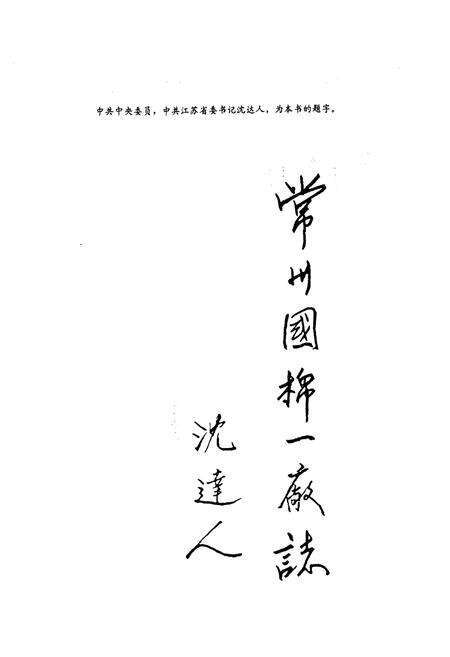 中共中央委员，中共江苏省委书记沈达人，为本书的题字。
常州國棉一廠誌
沈達人